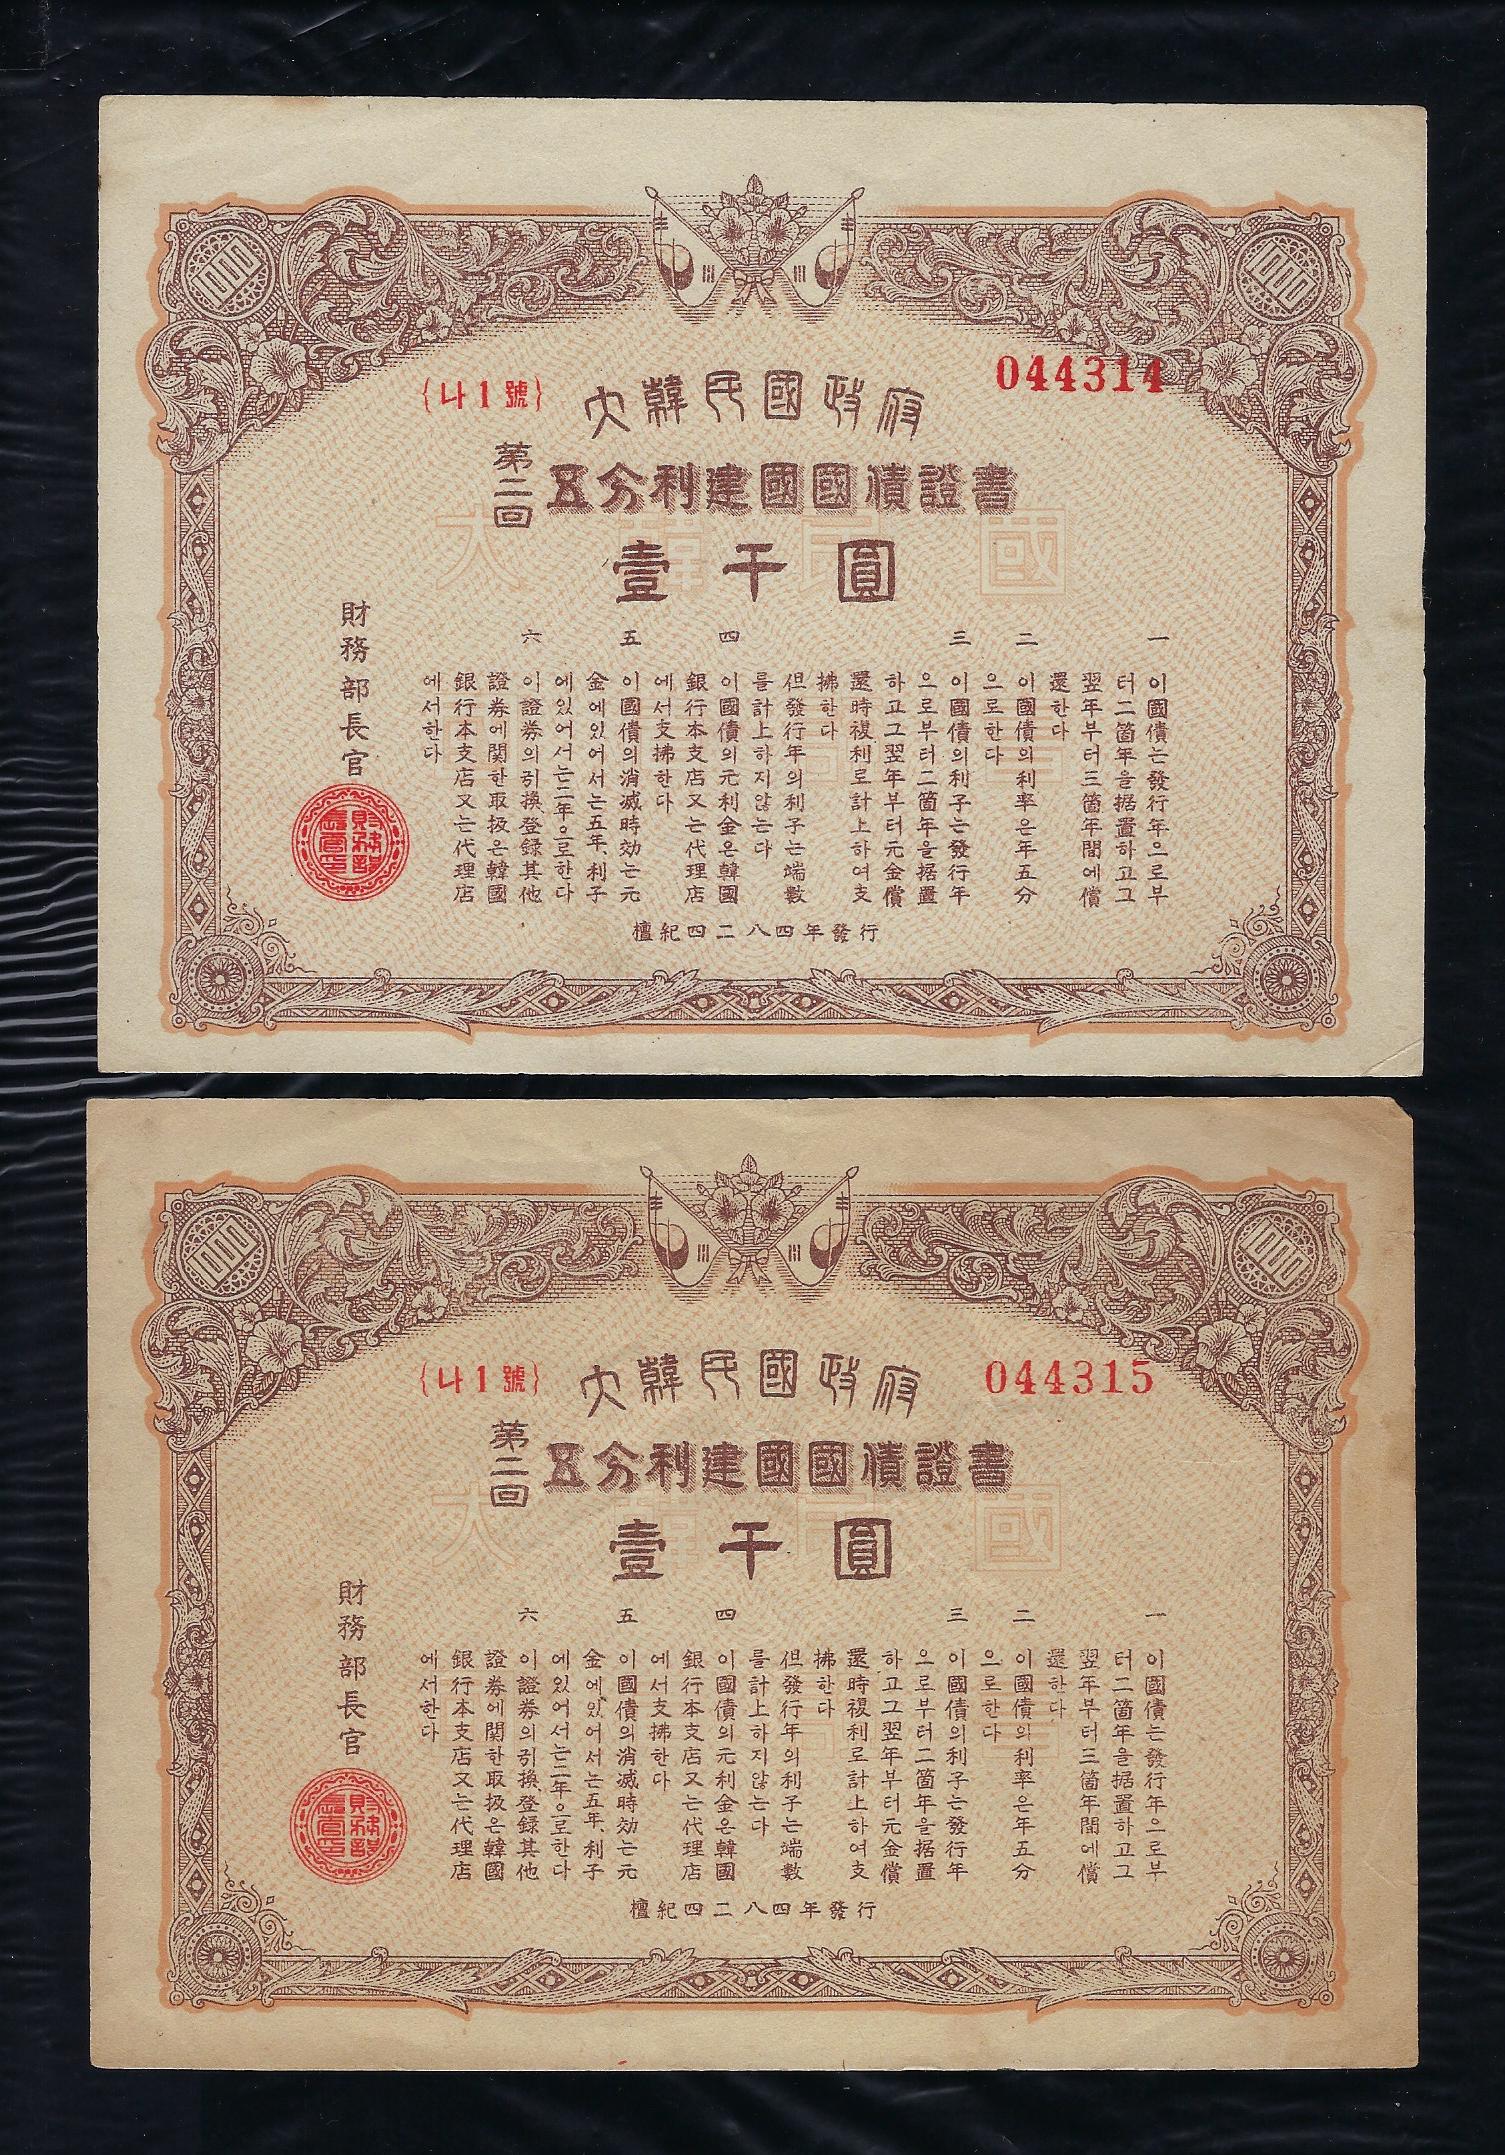 1000
1000
{나1號}
044314
大韓民國政府
第二回
五分利建國國債證書
壹千圓
大韓民國
一 이國債는發行年으로부
터二箇年을据置하고그
翌年부터三箇年間에償
還한다
二 이國債의利率은年五分
으로한다
三 이國債의利子는發行年
으로부터二箇年을据置
하고그翌年부터元金償
還時複利로計上하여支
拂한다
但發行年의利子는端數
를計上하지않는다
四 이國債의元利金은韓國
銀行本支店又는代理店
에서支拂한다
五 이國債의消滅時効는元
金에있어서는五年、利子
에있어서는二年으로한다
六 이證券의引換登録其他
證券에関한取扱은韓國
銀行本支店又는代理店
에서한다
財務部長官
檀紀四二八四年發行
1000
1000
{나1號}
044315
大韓民國政府
第二回
五分利建國國債證書
壹千圓
大韓民國
一 이國債는發行年으로부
터二箇年을据置하고그
翌年부터三箇年間에償
還한다
二 이國債의利率은年五分
으로한다
三 이國債의利子는發行年
으로부터二箇年을据置
하고그翌年부터元金償
還時複利로計上하여支
拂한다
但發行年의利子는端數
를計上하지않는다
四 이國債의元利金은韓國
銀行本支店又는代理店
에서支拂한다
五 이國債의消滅時効는元
金에있어서는五年、利子
에있어서는二年으로한다
六 이證券의引換、登録其他
證券에関한取扱은韓國
銀行本支店又는代理店
에서한다
財務部長官
檀紀四二八四年發行